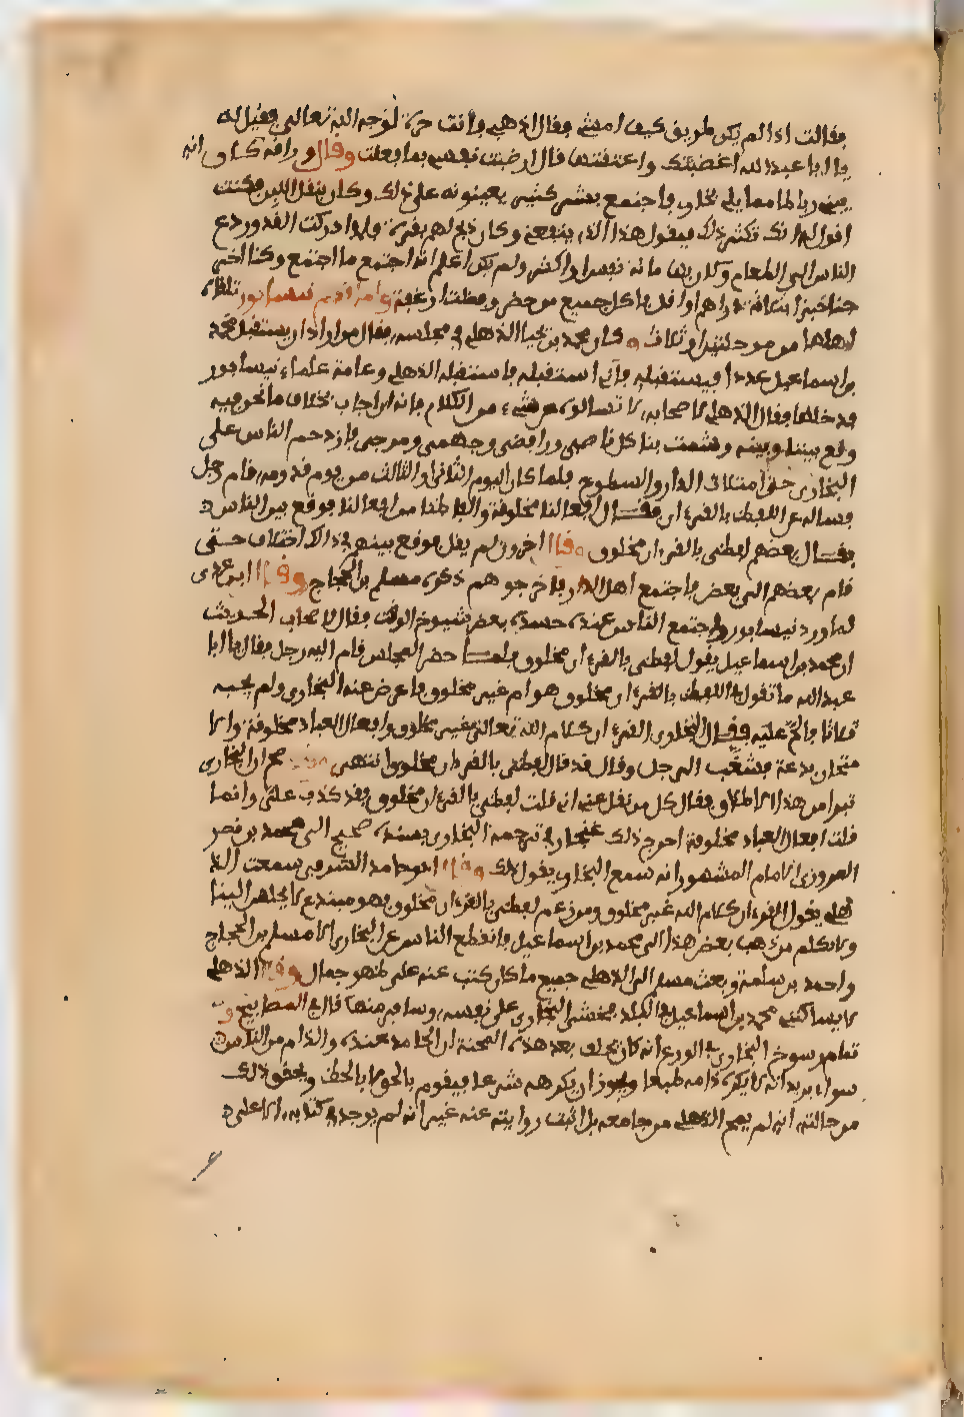 فقالت اذا لم يكن طريق كيف امشي فقال اذهبي فأنت حرة لوجه الله تعالى فقيل له
يا ابا عبد الله اغضبتك واعتقتها قال ارضيت نفسي بما فعلت وقال وراقه كان انه
يبني رباطا مما يلي بخارى فاجتمع بشر كثير يعينونه على ذلك وكان ينقل اللبن فكنت
اقول له انك تكفى ذلك فيقول هذا الذي ينفعني وكان ذبح لهم بقرة فلما ادركت القدور دعا
الناس الى الطعام وكان بها مائة نفس او اكثر ولم يكن اعلم انه اجتمع ما اجتمع وكنا اخرجنا
خبزا بثلاثة دراهم او اقل فاكل جميع من حضر وفضلت ارغفة ولما قدم نيسابور تلقاه
اهلها من مرحلتين او ثلاث وكان محمد بن يحيا الذهلي في مجلسه فقال من اراد ان يستقبل محمد
بن اسماعيل غدا فليستقبله فاني استقبله فاستقبله الذهلي وعامة علماء نيسابور
فدخلها فقال الذهلي لاصحابه لا تسالوه عن شيء من الكلام فانه ان اجاب بخلاف ما نحن فيه
وقع بيننا وبينه وشمت بنا كل ناصبي ورافضي وجهمي ومرجي فازدحم الناس على
البخاري حتى امتلات الدار والسطوح فلما كان اليوم الثاني او الثالث من يوم قدومه قام رجل
فساله عن اللفظ بالقرءان فقال افعالنا مخلوقة والفاظنا من افعالنا فوقع بين الناس
فقال بعضهم لفظي بالقرءان مخلوق وقال اخرون لم يقل فوقع بينهم في ذلك اختلاف حتى
قام بعضهم الى بعض فاجتمع اهل الدار فاخرجوهم ذكره مسلم بن الحجاج وقال ابن عدي
لما ورد نيسابور واجتمع الناس عنده حسده بعض شيوخ الوقت فقال لاصحاب الحديث
ان محمد بن اسماعيل يقول لفظي بالقرءان مخلوق فلما حضر المجلس قام اليه رجل فقال يا ابا
عبد الله ما تقول في اللفظ بالقرءان مخلوق هو ام غير مخلوق فاعرض عنه البخاري ولم يجبه
ثلاثا فالح عليه فقال البخاري القرءان كلام الله تعالى غير مخلوق وافعال العباد مخلوقة والا
متحان بدعة فشغب الرجل وقال قد قال لفظي بالقرءان مخلوق انتهى وقد صح ان البخاري
تبرا من هذا الاطلاق فقال كل من نقل عني اني قلت لفظي بالقرءان مخلوق فقد كذب علي وانما
قلت افعال العباد مخلوقة اخرج ذلك غنجار في ترجمة البخاري بسند صحيح الى محمد بن نصر
المروزي الامام المشهور انه سمع البخاري يقول ذلك وقال ابو حامد الشرفي سمعت الذ
هلي يقول القرءان كلام الله غير مخلوق ومن زعم لفظي بالقرءان مخلوق فهو مبتدع لا يجلس الينا
ولا نكلم من ذهب بعض هذا الى محمد بن اسماعيل فانقطع الناس عن البخاري الا مسلم بن الحجاج
واحمد بن سلمة وبعث مسلم الى الذهلي جميع ما كان كتب عنه على ظهر جمال وقال الذهلي
لا يساكنني محمد بن اسماعيل في البلد فخشي البخاري على نفسه وسافر منها قال في المصابيح و
تمام رسوخ البخاري في الورع انه كان يحلف بعد هذه المحنة ان الحامد عنده والذام من الناس
سواء يريد انه لا يكره ذامه طبعا ويجوز ان يكرهه شرعا فيقوم بالحق لا بالحظ ويحقق ذلك
من حالته انه لم يمح الذهلي من جامعه بل اثبت روايته عنه غير انه لم يوجد في كتابه الا على